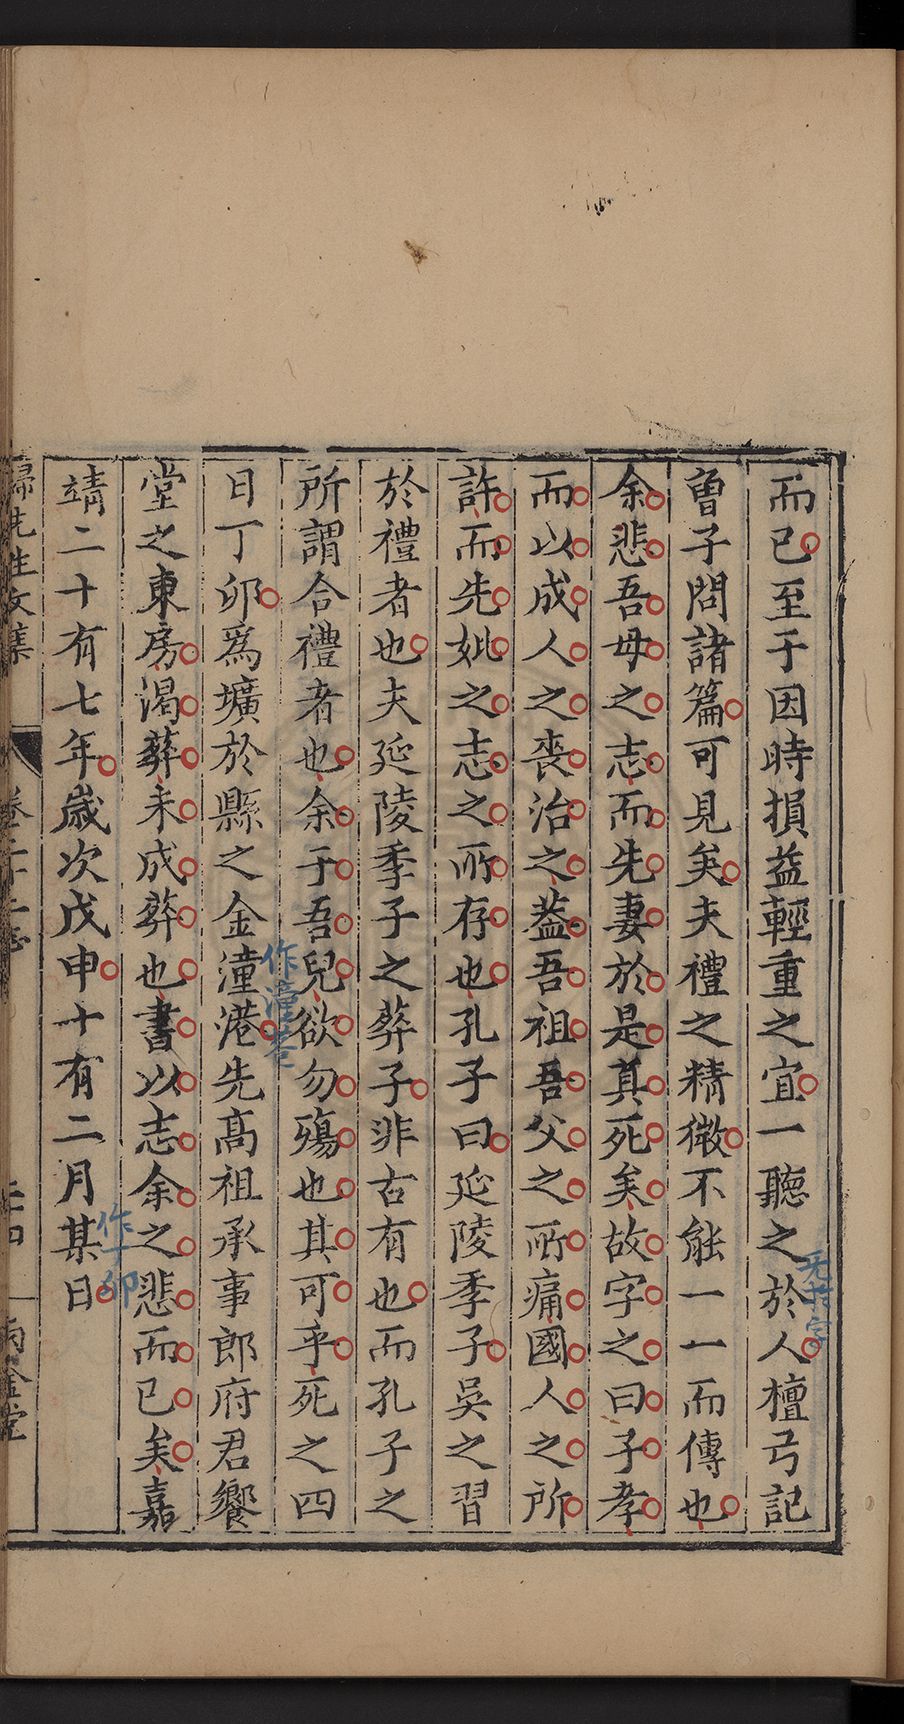 而已至于因時損益輕重之宜一聽之於人檀弓記
曾子問諸篇可見矣夫禮之精微不能一一而傳也
余悲吾母之志而先妻於是真死矣故字之曰子孝
而以成人之喪治之葢吾祖吾父之所痛國人之所
許而先妣之志之所存也孔子曰延陵季子吳之習
於禮者也夫延陵季子之葬子非古有也而孔子之
所謂合禮者也余于吾兒欲勿殤也其可乎死之四
日丁卯爲壙於縣之金潼港先高祖承事郎府君饗
堂之東房渴葬未成葬也書以志余之悲而已矣嘉
靖二十有七年歲次戊申十有二月某日
歸先生文集
卷二十二
兩金堂
作丁卯